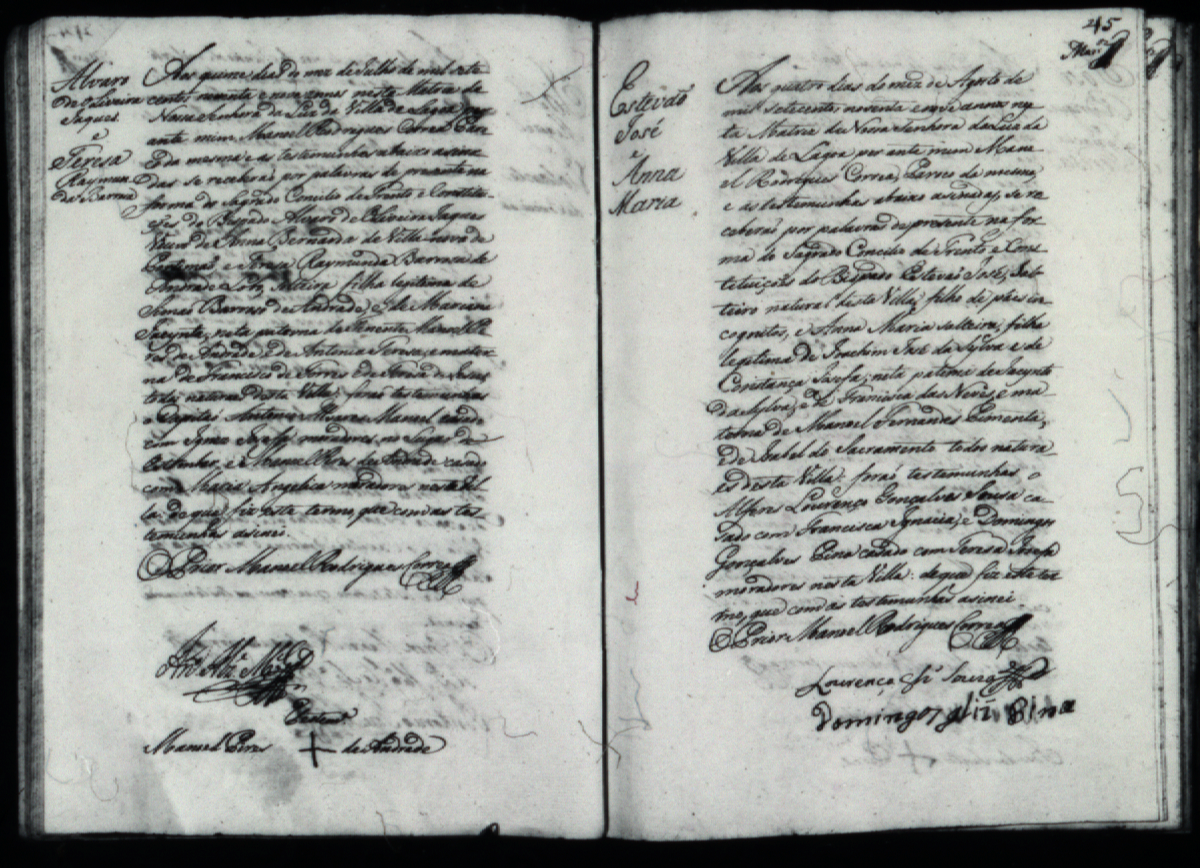 Alvaro
de Oliveira
Jaques
e
Teresa
Raymun
da Barros
Aos quinze dias do mez de Julho de mil sete
centos noventa e nove annos nesta Matris de
Nossa Senhora da Luz da Villa de Lagoa per
ante mim Manuel Rodrigues Correa Paro
co da mesma e as testemunhas abaixo asina
das se receberaõ por palavras de presente na
forma do Sagrado Concilio de Trento e Constitui
çoẽs do Bispado Alvaro de Oliveira Jaques
Viuvo de Anna Bernarda de Villa nova de
Portimaõ e Teresa Raymunda Barrosa de
Andrade solteira filha legitima de
Simaõ Barroso de Andrade, e de Mariana
Jacynta, neta paterna do Tenente Manuel Pi
res de Andrade, e de Antonia Teresa, e mater
na de Francisco de Torres e de Teresa de Jesus
todos naturaes desta Villa: foraõ testemunhas
o Capitaõ Antonio Alvares Manuel casado
com Ignez Josefa moradores no Lugar de
e Manuel Pires de Andrade casado
com Maria Angelica moradores nesta Vil
la: de que fiz este termo, que com as tes
temunhas asinei.
O Prior Manuel Rodrigues Correa
Manuel Pires + de Andrade
45
Estevaõ
José
e
Anna
Maria
Aos quatro dias do mez de Agosto de
mil setecentos noventa e nove annos nes
ta Matris de Nossa Senhora da Luz da
Villa de Lagoa per ante mim Manu
el Rodrigues Correa, Parroco da mesma
e as testemunhas abaixo asinadas, se re
ceberaõ por palavras de presente na for
ma do Sagrado Concilio de Trento e Cons
tituiçoẽs do Bispado Estevaõ José, Sol
teiro natural desta Villa, filho de pães in
cognitos, e Anna Maria solteira, filha
legitima de Joachim José da Sylva e de
Constança Josefa; neta paterna de Jacynto
da Sylva, e de Francisca das Neves, e ma
terna de Manuel Fernandes Pimenta,
e de Isabel do Sacramento todos natura
es desta Villa: foraõ testemunhas o
Alferes Lourenço Gonçalves Sousa ca
sado com Francisca Ignacia, e Domingos
Gonçalves Pina casado com Teresa Josefa
moradores nesta Villa: de que fiz este ter
mo, que com as testemunhas asinei.
O Prior Manuel Rodrigues Correa
Lourenço Glz Souza
Domingos glz Pina